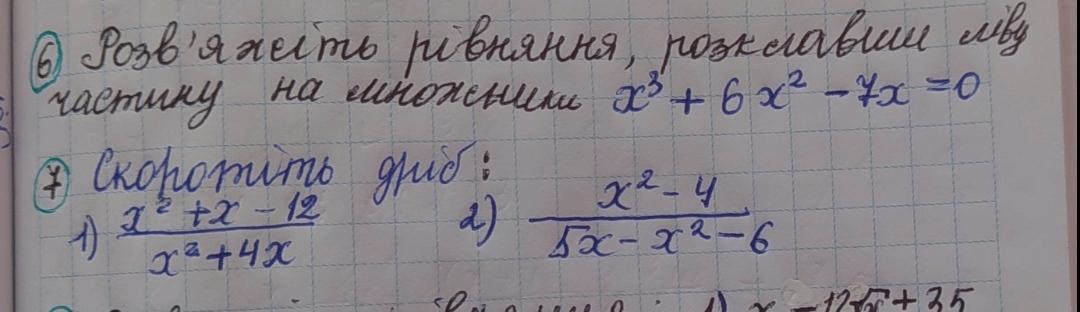 6 Розв'яжіть рівняння, розклавши ліву
частину на множники x³ + 6x² - 7x = 0
7 Скоротіть дріб:
1) (x² + x - 12)/(x² + 4x) 2) (x² - 4)/(5x - x² - 6)
1) x - 12√x + 35